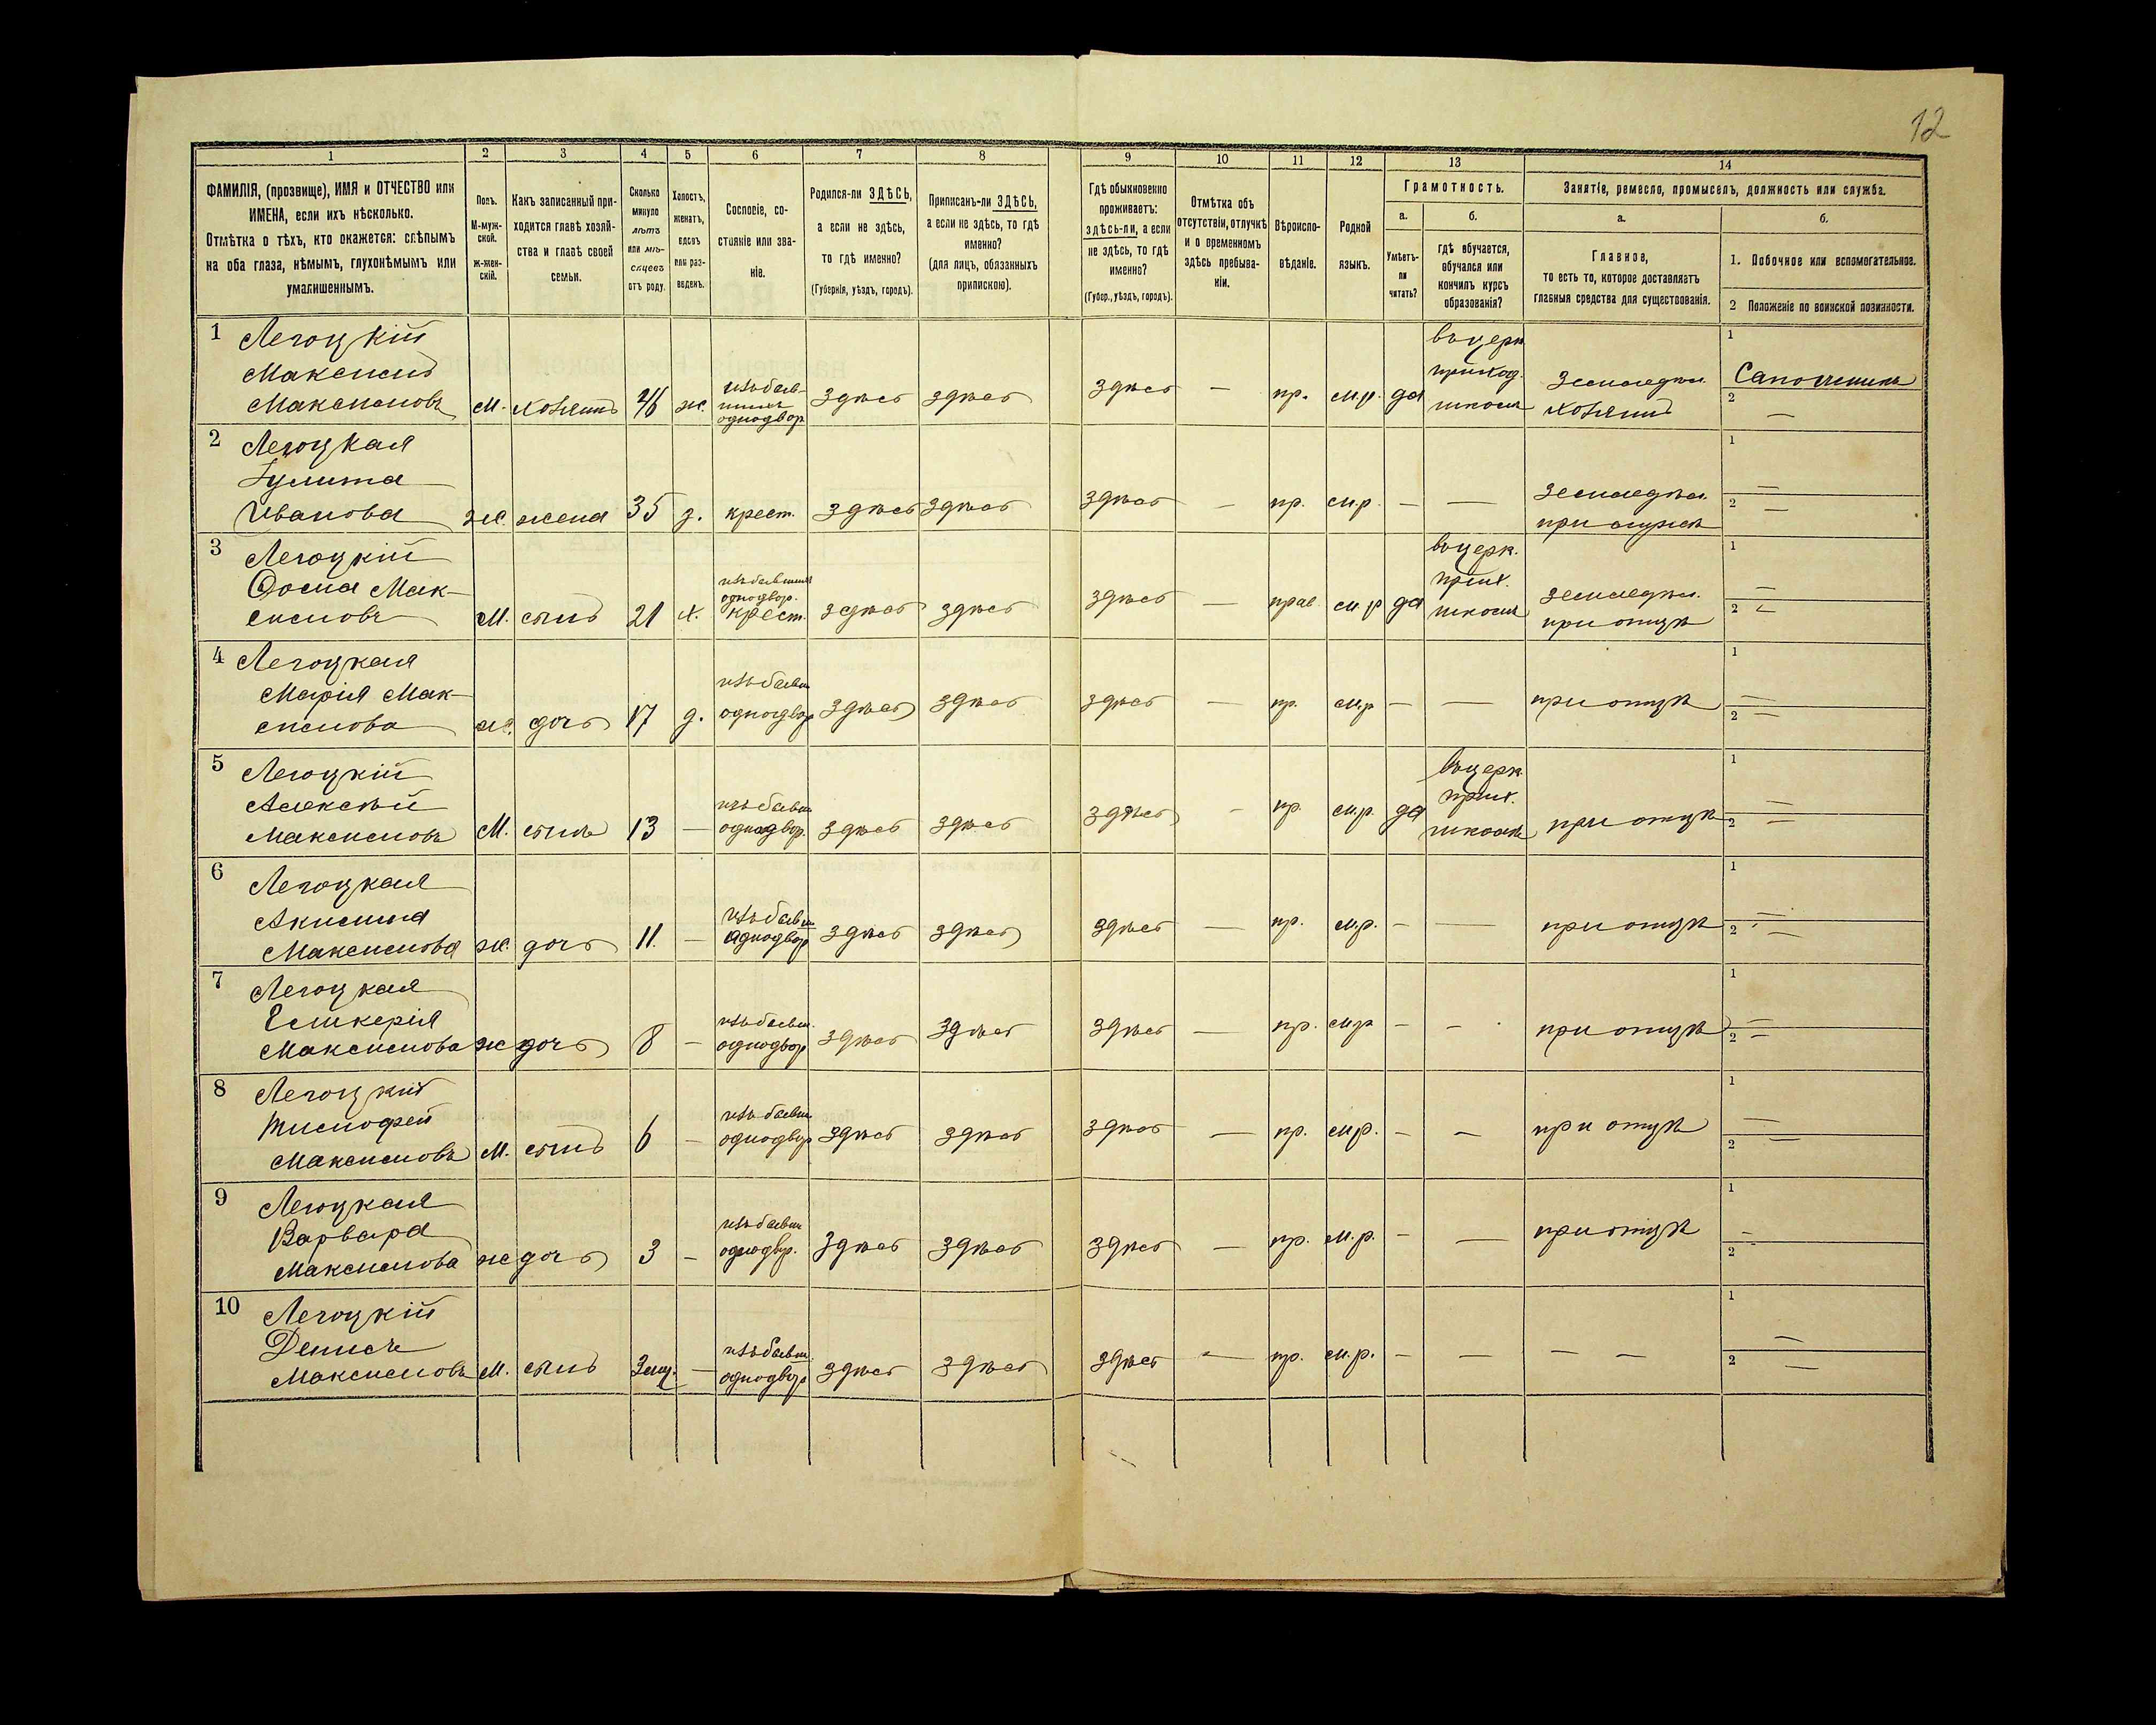 12
1 2 3 4 5 6 7 8 9 10 11 12 13 14
ФАМИЛІЯ, (прозвище), ИМЯ и ОТЧЕСТВО или
ИМЕНА, если ихъ нѣсколько.
Отмѣтка о тѣхъ, кто окажется: слѣпымъ
на оба глаза, нѣмымъ, глухонѣмымъ или
умалишеннымъ.
Полъ.
М-муж-
ской.
ж-жен-
скій.
Какъ записанный при-
ходится главѣ хозяй-
ства и главѣ своей
семьи.
Сколько
минуло
лѣтъ
или мѣ-
сяцевъ
отъ роду.
Холостъ,
женатъ,
вдовъ
или раз-
веденъ.
Сословіе, со-
стояніе или зва-
ніе.
Родился-ли ЗДѢСЬ,
а если не здѣсь,
то гдѣ именно?
(Губернія, уѣздъ, городъ).
Приписанъ-ли ЗДѢСЬ,
а если не здѣсь, то гдѣ
именно?
(для лицъ, обязанныхъ
припискою).
Гдѣ обыкновенно
проживаетъ:
здѣсь-ли, а если
не здѣсь, то гдѣ
именно?
(Губер., уѣздъ, городъ).
Отмѣтка объ
отсутствіи, отлучкѣ
и о временномъ
здѣсь пребыва-
ніи.
Вѣроиспо-
вѣданіе.
Родной
языкъ.
Грамотность.
а.
Умѣетъ-
ли
читать?
б.
гдѣ обучается,
обучался или
кончилъ курсъ
образованія?
Занятіе, ремесло, промыселъ, должность или служба.
а.
Главное,
то есть то, которое доставляетъ
главныя средства для существованія.
б.
1. Побочное или вспомогательное.
2 Положеніе по воинской повинности.
1 Легоцкій
Максимъ
Максимовъ
М. хозяинъ 46 ж.
изъ быв-
шихъ
однодвор
здѣсь здѣсь здѣсь — пр. м.р. да
въ церк
приход.
школѣ
Земледѣл.
хозяинъ
1
Сапожникъ
2 —
2 Легоцкая
Іулита
Иванова
ж. жена 35 з. крест. здѣсь здѣсь здѣсь — пр. м.р — —
Земледѣл.
при мужѣ
1 —
2 —
3 Легоцкій
Фома Мак-
симовъ
М. сынъ 21 х.
изъ бывшихъ
однодвор.
крест.
здѣсь здѣсь здѣсь — прав м.р да
въ церк.
прих.
школѣ
Земледѣл.
при отцѣ
1 —
2 —
4 Легоцкая
Марія Мак-
симова
ж. дочь 17 д.
изъ бывш
однодвор
здѣсь здѣсь здѣсь — пр. м.р — — при отцѣ
1 —
2 —
5 Легоцкій
Алексѣй
Максимовъ
М. сынъ 13 —
изъ бывш
однодвор.
здѣсь здѣсь здѣсь - пр. м.р. да
въ церк.
прих.
школѣ
при отцѣ
1 —
2 —
6 Легоцкая
Акилина
Максимова
ж. дочь 11. —
изъ бывш
однодвор
здѣсь здѣсь здѣсь — пр. м.р. - — при отцѣ
1 —
2 —
7 Легоцкая
Гликерія
Максимова
ж дочь 8 —
изъ бывш.
однодвор
здѣсь здѣсь здѣсь — пр. м.р - - при отцѣ
1 —
2 —
8 Легоцкій
Тимофей
Максимовъ
М. сынъ 6 —
изъ бывш.
однодвор
здѣсь здѣсь здѣсь — пр. м.р. - — при отцѣ
1 —
2 —
9 Легоцкая
Варвара
Максимова
ж дочь 3 —
изъ бывш
однодвр.
здѣсь здѣсь здѣсь — пр. м.р. - — при отцѣ
1 —
2 -
10 Легоцкій
Денисъ
Максимовъ
М. сынъ 3 мц. —
изъ бывш.
однодвор
здѣсь здѣсь здѣсь — пр. м.р. — — — —
1 —
2 —